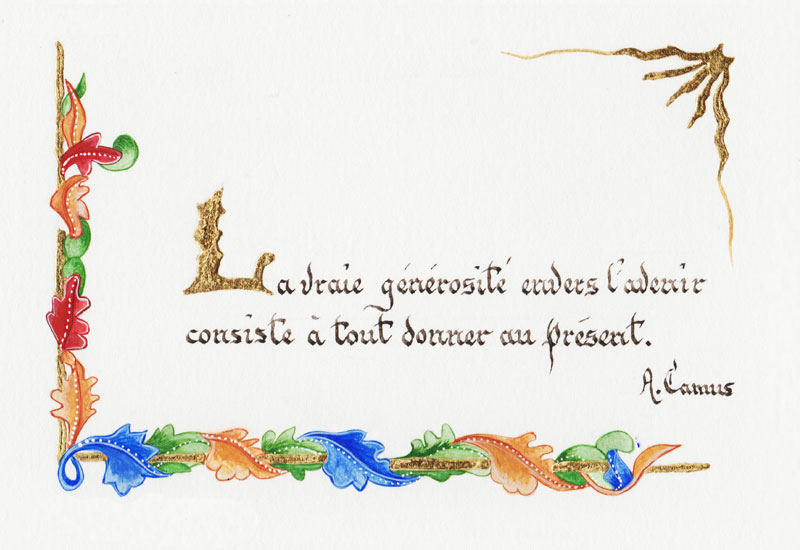 La vraie générosité envers l'avenir
consiste à tout donner au présent.
A. Camus